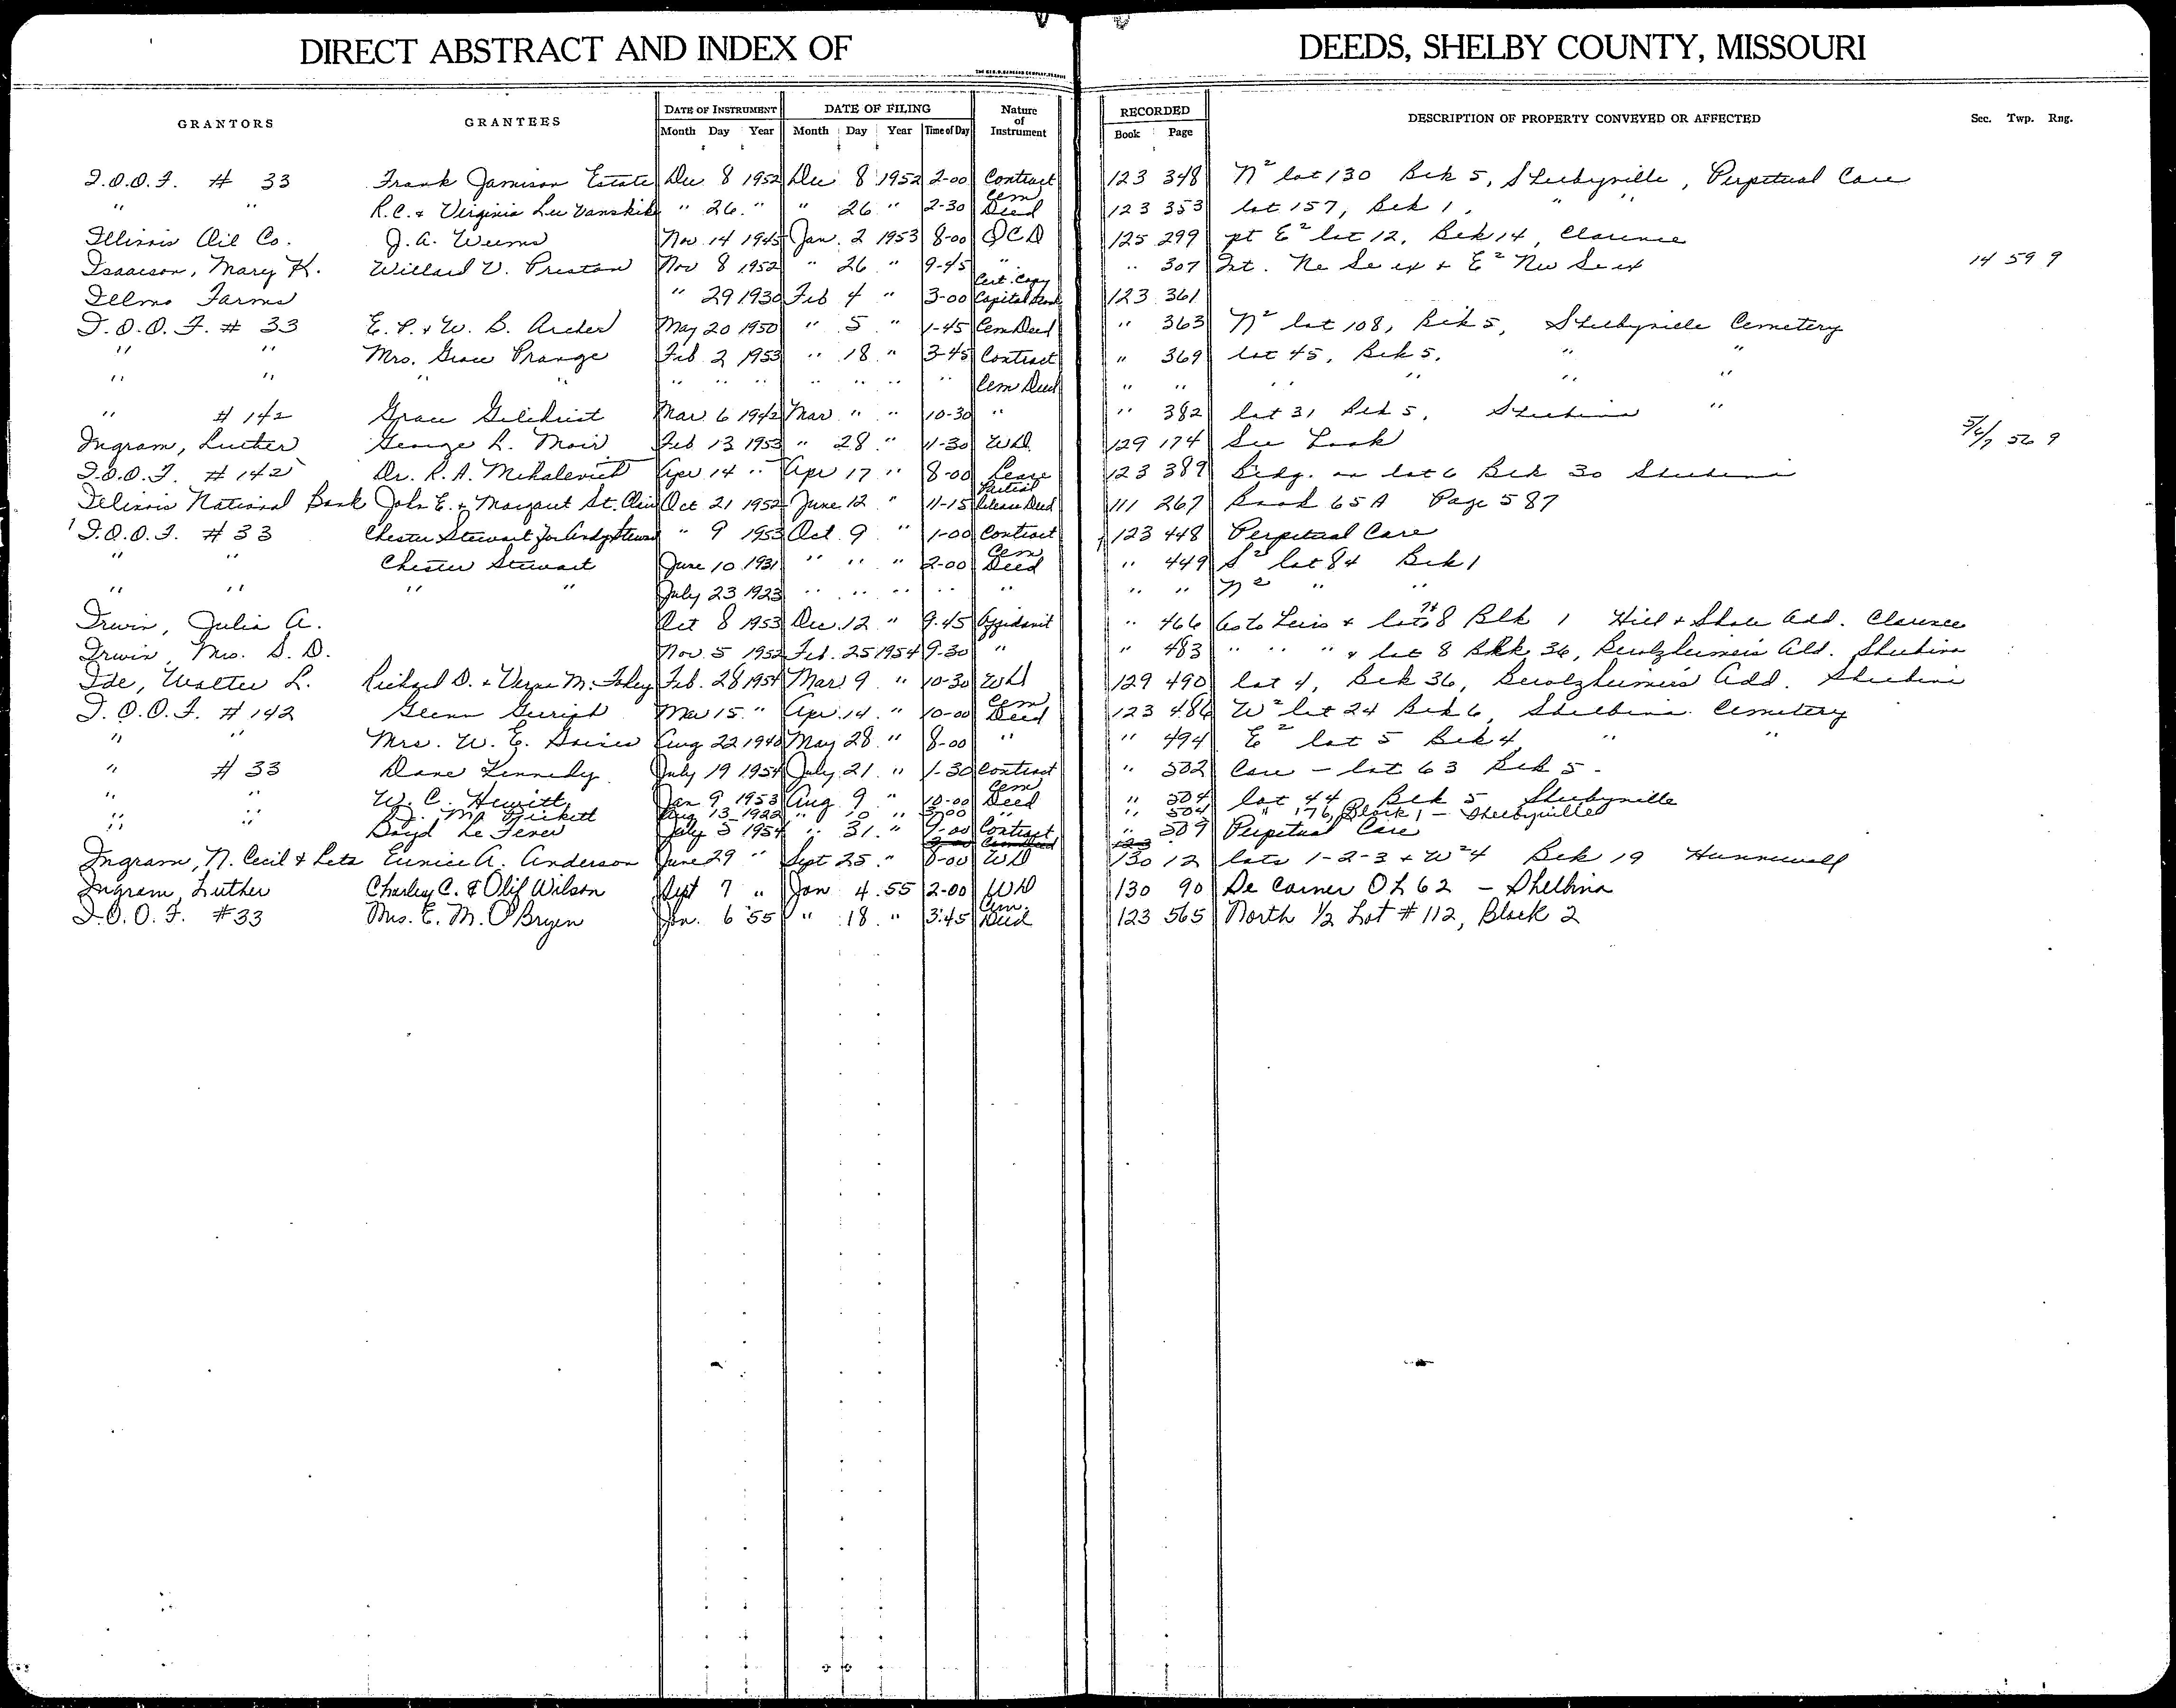 DIRECT ABSTRACT AND INDEX OF DEEDS, SHELBY COUNTY, MISSOURI
GRANTORS GRANTEES DATE OF INSTRUMENT DATE OF FILING Nature of Instrument RECORDED DESCRIPTION OF PROPERTY CONVEYED OR AFFECTED Sec. Twp. Rng.
Month Day Year Month Day Year Time of Day Book Page
I.O.O.F. # 33 Frank Jamison Estate Dec 8 1952 Dec 8 1952 2-00 Contract 123 348 N² lot 130 Blk 5, Shelbyville, Perpetual Care
" " R.C. & Virginia Lee Vanskike " 26 " " 26 " 2-30 Cem Deed 123 353 lot 157, Blk 1, " "
Illinois Oil Co. J.A. Weems Nov. 14 1945 Jan. 2 1953 8-00 QCD 125 299 pt E² lot 12, Blk 14, Clarence
Isaacson, Mary K. Willard V. Preston Nov 8 1952 " 26 " 9-45 " " 307 Int. Ne Se ex & E² Nw Se ex 14 59 9
Illmo Farms " 29 1930 Feb 4 " 3-00 Cert. Copy Capital 123 361
I.O.O.F. # 33 E.P. & W.B. Archer May 20 1950 " 5 " 1-45 Cem Deed " 363 N² lot 108, Blk 5, Shelbyville Cemetery
" " Mrs. Grace Prange Feb 2 1953 " 18 " 3-45 Contract " 369 lot 45, Blk 5, " "
" " " " " " " " " " " Cem Deed " " " " " "
" # 142 Grace Gilchrist Mar 6 1942 Mar " " 10-30 " " 382 lot 31 Blk 5, Shelbina "
Ingram, Luther George L. Moir Feb 13 1953 " 28 " 11-30 WD 129 174 See Book 5/6/7 56 9
I.O.O.F. # 142 Dr. R.A. Mihalevich Apr 14 " Apr 17 " 8-00 Lease 123 389 Bldg. on lot 6 Blk 30 Shelbina
Illinois National Bank John E. & Margaret St. Clair Oct 21 1952 June 12 " 11-15 Partial Release Deed 111 267 Book 65A Page 587
I.O.O.F. # 33 Chester Stewart for Andy Stewart " 9 1953 Oct. 9 " 1-00 Contract 123 448 Perpetual Care
" " Chester Stewart June 10 1931 " " " 2-00 Cem Deed " 449 S² lot 84 Blk 1
" " " " July 23 1923 " " " " " " " N² " "
Irwin, Julia A. Oct 8 1953 Dec. 12 " 9-45 Affidavit " 466 As to Leins & lots 7& 8 Blk 1 Hill & Shale Add. Clarence
Irwin, Mrs. S.D. Nov. 5 1952 Feb. 25 1954 9-30 " " 483 " " " & lot 8 Blk 36, Berolzheimer's Add. Shelbina
Ide, Walter L. Richard D. & Verna M. Foley Feb. 28 1954 Mar 9 " 10-30 WD 129 490 lot 4, Blk 36, Berolzheimer's Add. Shelbina
I.O.O.F. # 142 Glenn Mar 15 " Apr. 14 " 10-00 Cem Deed 123 486 W² lot 24 Blk 6, Shelbina Cemetery
" " Mrs. W.E. Gaines Aug 22 1940 May 28 " 8-00 " " 494 E² lot 5 Blk 4, " "
" # 33 Dane Kennedy July 19 1954 July 21 " 1-30 Contract " 502 Care - lot 63 Blk 5 -
" " W.C. Hewitt Jan 9 1953 Aug 9 " 10-00 Cem Deed " 504 lot 44 Blk 5 Shelbyville
" " Pickett Aug 13 1922 " 10 " 3-00 " " 504 " 176, Block 1 - Shelbyville
" " Boyd Le Fever July 3 1954 " 31 " 9-00 Contract " 509 Perpetual Care
Ingram, N. Cecil & Leta Eunice A. Anderson June 29 " Sept 25 " 8-00 WD 130 12 lots 1-2-3 & W²4 Blk 19 Hunnewell
Ingram, Luther Charley C. & Olif Wilson Sept 7 " Jan 4 55 2-00 WD 130 90 Se Corner OL 62 - Shelbina
I.O.O.F. #33 Mrs. E.M. O'Bryen Jan. 6 '55 " 18 " 3:45 Cem. Deed 123 565 North 1/2 Lot # 112, Block 2